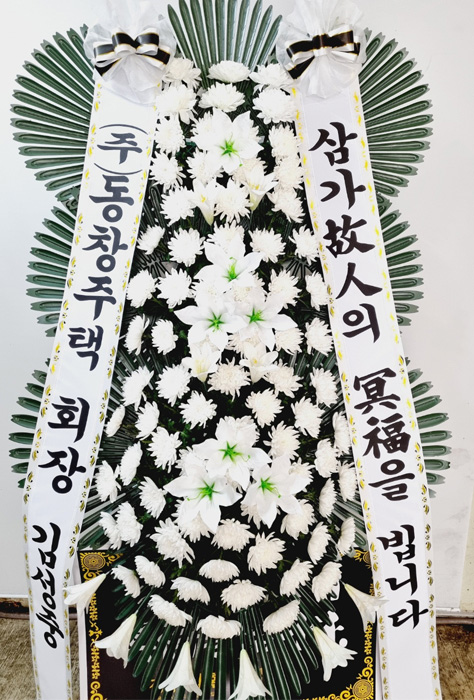 삼가故人의 冥福을 빕니다
(주)동창주택 회장